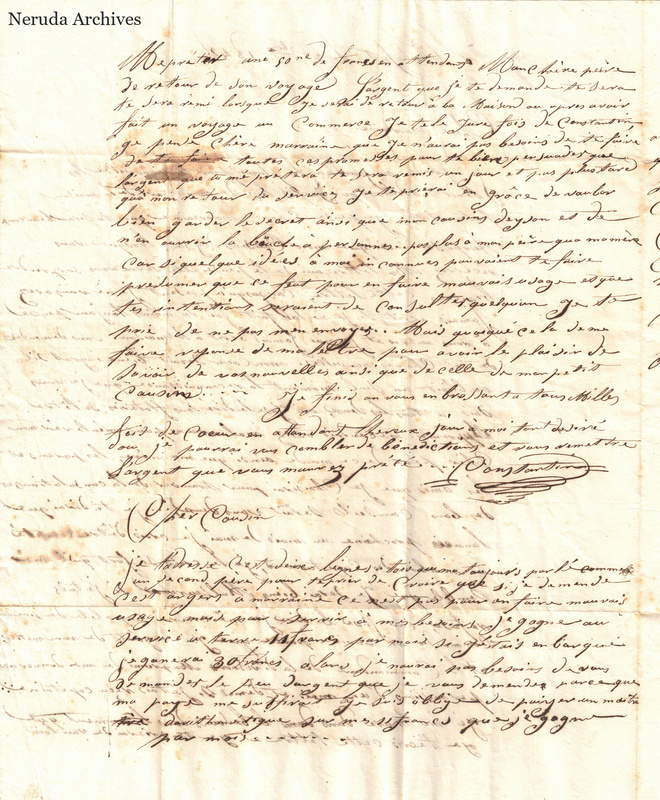 Neruda Archives
Me prêter une 50ne de francs en attendant Mon chère père
de retour de son voyage l'argent que je te demande te sera
te sera remi lorsque je serai de retour a la Maison ou apres avoir
fait un voyage au Commerce Je te le Jure fois de Constantin
je pense chère marraine que je n'aurai pas besoins de te faire
de toutes ces promesses pour te bien persuader que
l'argent que tu me prêtera te sera remis un jour et pas plus tard
qua mon retour du service Je te prierai en grâce de vouloir
bien garder le secret ainsi que mon cousins et de
n'en ouvrir la bouche a personnes pas plus a mon père qua ma mère
Car si quelque idées a moi inconnues pouvaient te faire
présumer que ce feut pour en faire mauvais usage et que
tes intentions seraient de consulter quelquun Je te
prie de ne pas men envoyer.. Mais quoique cela de me
faire reponse de ma lettre pour avoir le plaisir de
savoir de vos nouvelles ainsi que de celle de mon petit
Cousins....... Je finis an vous en brassant a tous Milles
fois de Coeur en attendant heureux jour a moi tant desiré
dou je pourrai vous combler de bénédictions et vous remettre
l'argent que vous maurez prêté... Constantin
Cher Cousin
je tadresse c'est deux lignes a toi qui ma toujours parlé comme
un second père pour te prier de Croire que si je demande
c'est argent a marraine ce nest pas pour en faire mauvais
usage mais pour servir a mes besoins je gagne au
service a terre francs par mois si j'étais en barqué
je ganerai 30 francs alors je naurai pas besoins de vous
demander le peu dargent que je vous demande parce que
ma paye me suffirait je suis obligé de paiyer un maitre
darithmetique sur mes francs que je gagne
par mois